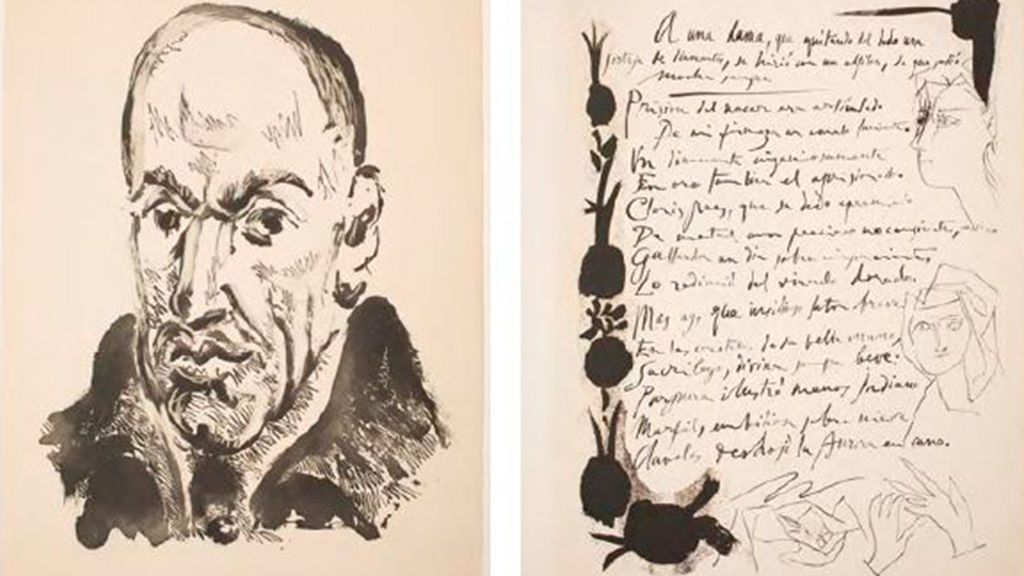 A una dama, que quitando del dedo una
sortija de diamante, se hirió con un alfiler, de que salió
mucha sangre
Prision del nacar era articulado
De mi firmeza un emulo luciente,
Un diamante ingeniosamente
En oro tambien el aprisionado.
Cloris pues, que su dedo apremiado
De metal aun precioso no consiente,
Gallarda un dia sobre impaciente,
Lo redimió del vinculo dorado.
Mas ay, que insidioso laton breve
En los cristales de su bella mano
Sacrilego, divina sangre beve:
Purpura ilustró menos indiano
Marfil, sobre nieve
Claveles deshojó la Aurora en vano.